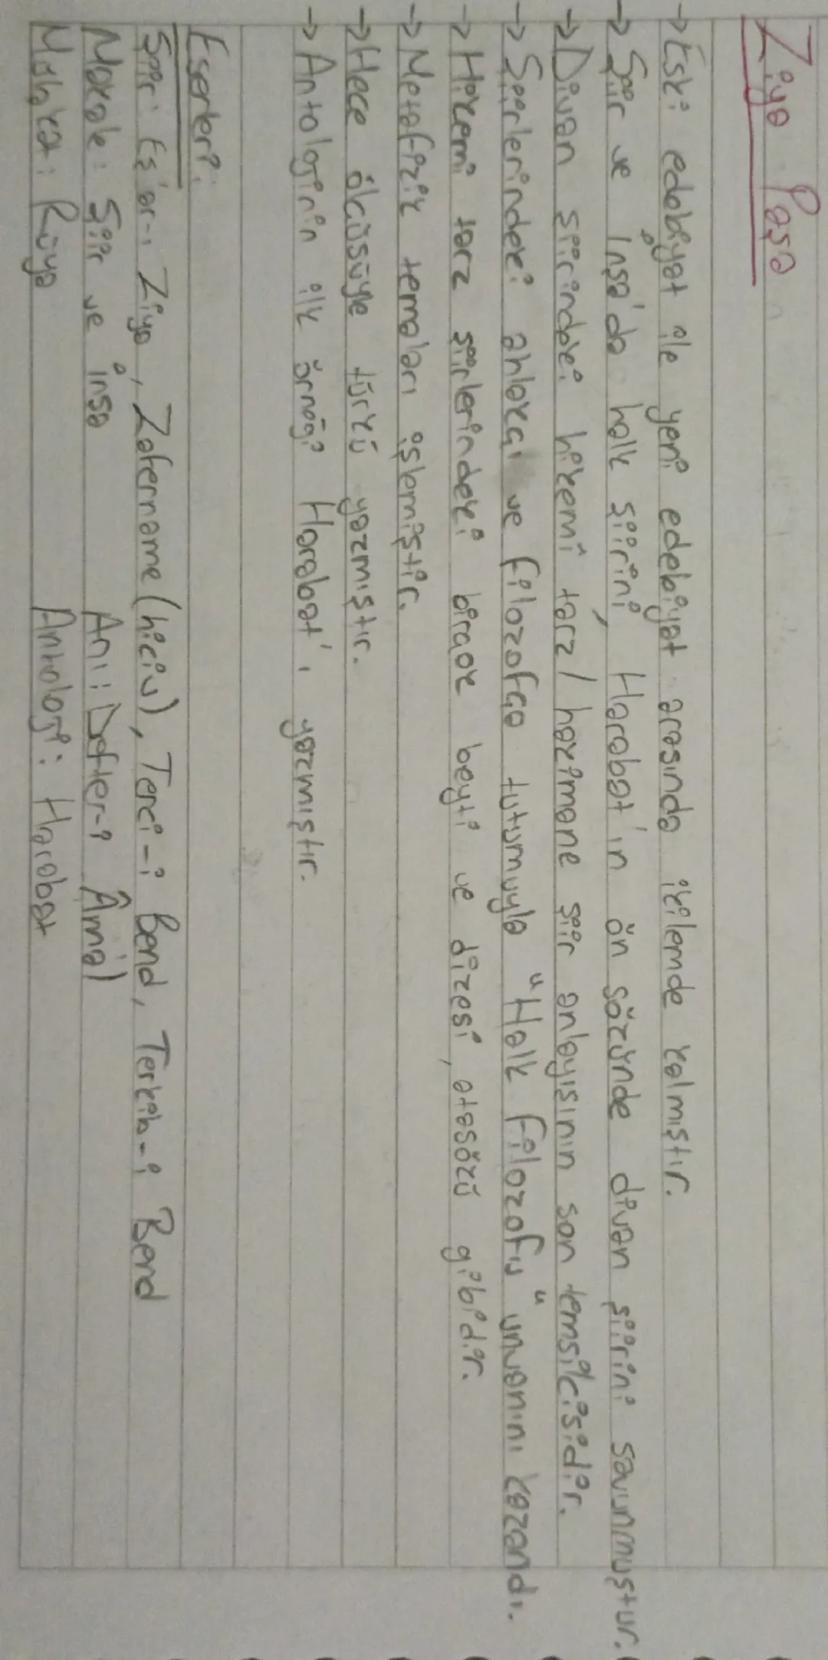 Ziya Paşa
→ Eski edebiyat ile yeni edebiyat arasında ikilemde kalmıştır.
→ Şiir ve İnşa'da halk şiirini, Harabat'ın ön sözünde divan şiirini savunmuştur.
→ Divan şiirindeki hikemî tarz/hakimane şiir anlayışının son temsilcisidir.
→ Şiirlerindeki ahlakçı ve filozofça tutumuyla "Halk Filozofu" unvanını kazandı.
→ Hikemi tarz şiirlerindeki birçok beyti ve dizesi, atasözü gibidir.
→ Metafizik temaları işlemiştir.
→ Hece ölçüsüyle türkü yazmıştır.
→ Antolojinin ilk örneği Harabat'ı yazmıştır.
Eserleri:
Şiir: Eş'ar-ı Ziya, Zafername (hiciv), Terci-i Bend, Terkib-i Bend
Makale: Şiir ve İnşa Anı: Defter-i Âmâl
Mülakat: Rüya Antoloji: Harabat